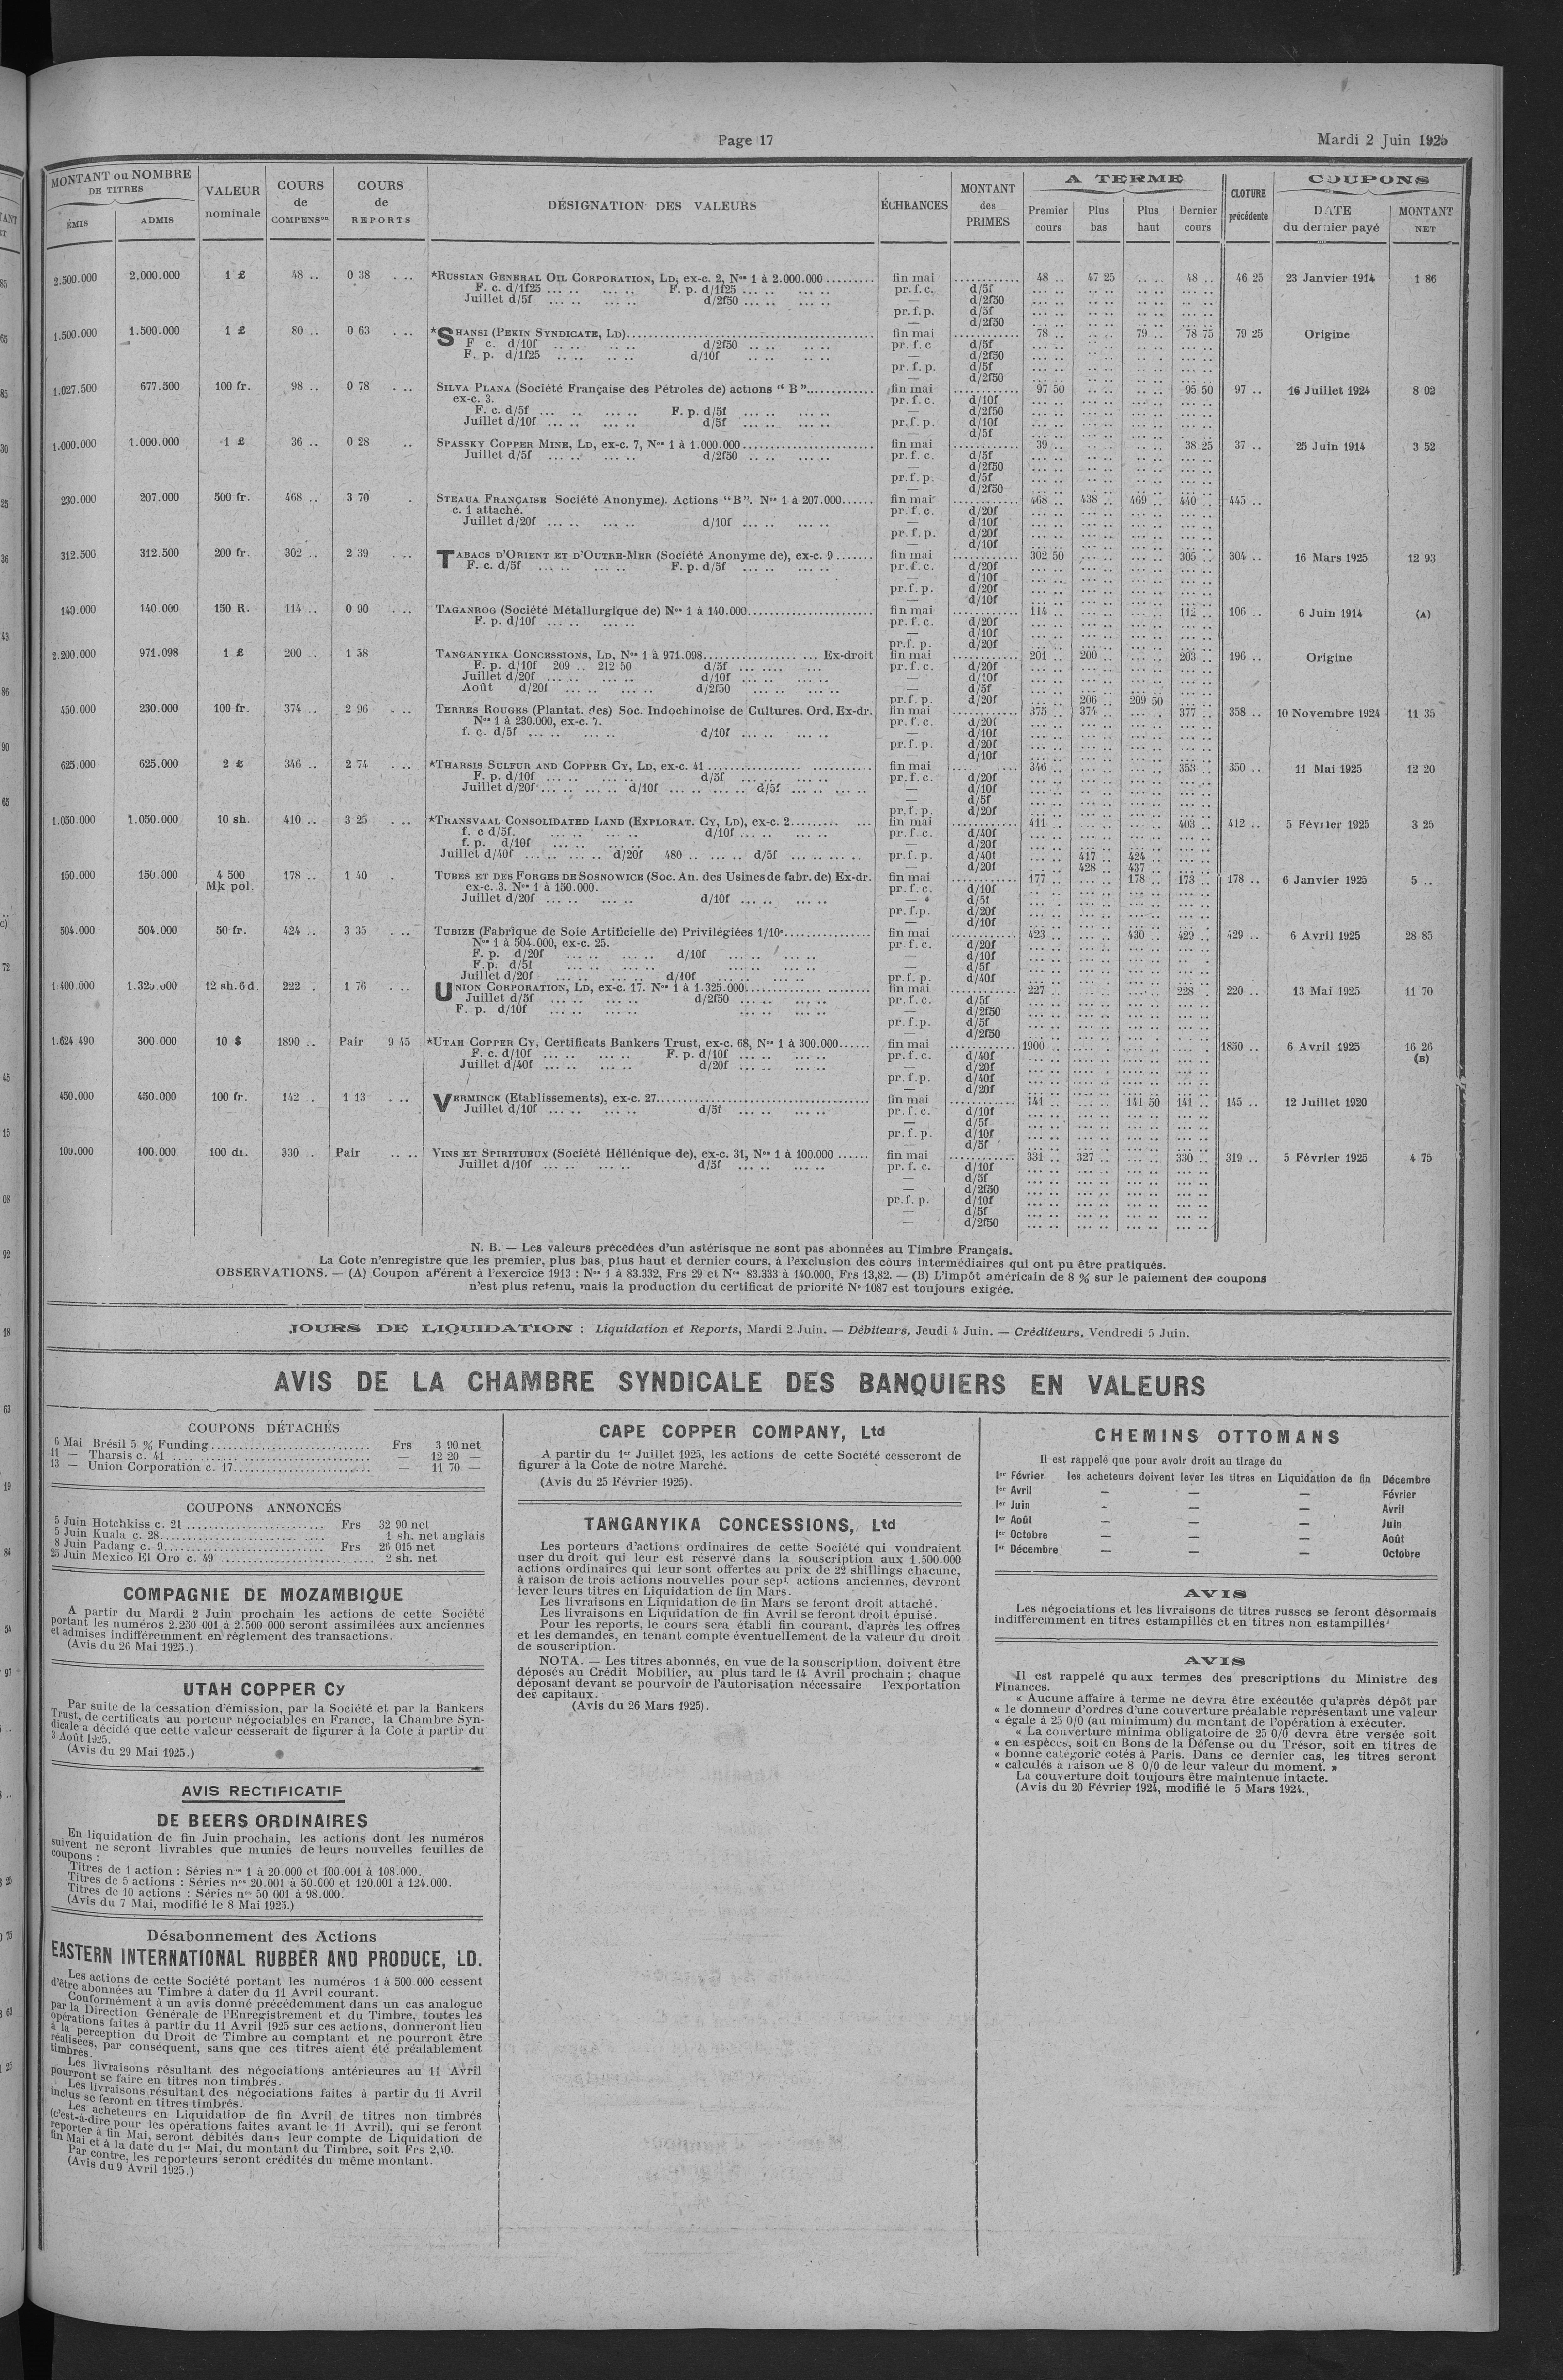 Page 17
Mardi 2 Juin 1925
MONTANT ou NOMBRE DE TITRES
ÉMIS ADMIS
VALEUR nominale
COURS de COMPENSon
COURS de REPORTS
DÉSIGNATION DES VALEURS
ÉCHEANCES
MONTANT des PRIMES
A TERME
Premier cours Plus bas Plus haut Dernier cours
CLOTURE précédente
COUPONS
DATE du dernier payé MONTANT NET
2.500.000 2.000.000 1 £ 48 .. 0 38 . .. *RUSSIAN GENERAL OIL CORPORATION, LD, ex-c. 2, Nos 1 à 2.000.000 ......... fin mai ........... 48 .. 47 25 .. .. 48 .. 46 25 23 Janvier 1914 1 86
F. c. d/1f25 ... .. ... .. F. p. d/1f25 ... .. ... .. pr. f. c. d/5f
Juillet d/5f ... .. ... .. d/2f50 ... .. ... .. — d/2f50
pr. f. p. d/5f
— d/2f50
1.500.000 1.500.000 1 £ 80 .. 0 63 . .. *SHANSI (PEKIN SYNDICATE, LD)........ fin mai ........... 78 .. .. .. 79 .. 78 75 79 25 Origine
F c. d/10f .. .. .. .. d/2f50 .. .. .. .. pr. f. c d/5f
F. p. d/1f25 .. .. .. .. d/10f .. .. .. .. — d/2f50
pr. f. p. d/5f
— d/2f50
1.027.500 677.500 100 fr. 98 .. 0 78 . .. SILVA PLANA (Société Française des Pétroles de) actions “ B ”............ fin mai ........... 97 50 95 50 97 .. 16 Juillet 1924 8 02
ex-c. 3. pr. f. c. d/10f
F. c. d/5f ... .. ... .. F. p. d/5f ... .. ... .. — d/2f50
Juillet d/10f ... .. ... .. d/5f ... .. ... .. pr. f. p. d/10f
— d/5f
1.000.000 1.000.000 1 £ 36 .. 0 28 .. SPASSKY COPPER MINE, LD, ex-c. 7, Nos 1 à 1.000.000 ........ fin mai ........... 39 .. 38 25 37 .. 25 Juin 1914 3 52
Juillet d/5f ... .. ... .. d/2f50 .. .. ... .. pr. f. c. d/5f
— d/2f50
pr. f. p. d/5f
— d/2f50
230.000 207.000 500 fr. 468 .. 3 70 . STEAUA FRANÇAISE Société Anonyme). Actions “B”. Nos 1 à 207.000...... fin mai ........... 468 .. 438 .. 469 .. 440 .. 445 ..
c. 1 attaché. pr. f. c. d/20f
Juillet d/20f ... .. ... .. d/10f ... .. ... .. — d/10f
pr. f. p. d/20f
— d/10f
312.500 312.500 200 fr. 302 .. 2 39 . .. TABACS D'ORIENT ET D'OUTRE-MER (Société Anonyme de), ex-c. 9 ....... fin mai ........... 302 50 305 .. 304 .. 16 Mars 1925 12 93
F. c. d/5f ... .. ... .. F. p. d/5f ... .. ... .. pr. f. c. d/20f
— d/10f
pr. f. p. d/20f
— d/10f
140.000 140.000 150 R. 114 .. 0 90 . .. TAGANROG (Société Métallurgique de) Nos 1 à 140.000........ fin mai ........... 114 .. 112 .. 106 .. 6 Juin 1914 (A)
F. p. d/10f ... .. ... .. pr. f. c. d/20f
— d/10f
pr. f. p. d/20f
2.200.000 971.098 1 £ 200 . 1 58 TANGANYIKA CONCESSIONS, LD, Nos 1 à 971.098........ Ex-droit fin mai ........... 201 .. 200 .. 203 .. 196 .. Origine
F. p. d/10f 209 .. 212 50 d/5f ... .... ... pr. f. c. d/20f
Juillet d/20f ... .. ... .. d/10f ... .. ... .. — d/10f
Août d/20f ... .. ... .. d/2f50 ... .. ... .. — d/5f
pr. f. p. d/20f 206 .. 209 50
450.000 230.000 100 fr. 374 .. 2 96 . .. TERRES ROUGES (Plantat. des) Soc. Indochinoise de Cultures. Ord. Ex-dr. fin mai ........... 375 .. 374 .. 377 .. 358 .. 10 Novembre 1924 11 35
Nos 1 à 230.000, ex-c. 7. pr. f. c. d/20f
f. c. d/5f ... .. ... .. d/10f ... .. ... .. — d/10f
pr. f. p. d/20f
— d/10f
625.000 625.000 2 £ 346 .. 2 74 . .. *THARSIS SULFUR AND COPPER CY, LD, ex-c. 41 ........ fin mai ........... 346 .. 353 .. 350 .. 11 Mai 1925 12 20
F. p. d/10f ... .. ... .. d/5f ... .. ... .. pr. f. c. d/20f
Juillet d/20f ... .. ... .. d/10f ... .. ... .. d/5f ... .. ... .. — d/10f
— d/5f
pr. f. p. d/20f
1.050.000 1.050.000 10 sh. 410 .. 3 25 . .. *TRANSVAAL CONSOLIDATED LAND (EXPLORAT. CY, LD), ex-c. 2........ fin mai ........... 411 .. 403 .. 412 .. 5 Février 1925 3 25
f. c d/5f. ... .. ... .. d/10f ... .. ... .. pr. f. c. d/40f
f. p. d/10f ... .. ... .. — d/20f
Juillet d/40f ... .. ... .. d/20f 480 .. ... .. d/5f ... .. ... .. pr. f. p. d/40f 417 .. 424 ..
— d/20f 428 .. 437 ..
150.000 150.000 4 500 Mk pol. 178 .. 1 40 TUBES ET DES FORGES DE SOSNOWICE (Soc. An. des Usines de fabr. de) Ex-dr. fin mai ........... 177 .. 178 .. 173 .. 178 .. 6 Janvier 1925 5 ..
ex-c. 3. Nos 1 à 150.000. pr. f. c. d/10f
Juillet d/20f ... .. ... .. d/10f ... .. ... .. — d/5f
pr. f.p. d/20f
— d/10f
504.000 504.000 50 fr. 424 .. 3 35 . .. TUBIZE (Fabrique de Soie Artificielle de) Privilégiées 1/10e............... fin mai ........... 423 .. 430 .. 429 .. 429 .. 6 Avril 1925 28 85
Nos 1 à 504.000, ex-c. 25. pr. f. c. d/20f
F. p. d/20f ... .. ... .. d/10f ... .. ... .. — d/10f
F. p. d/5f ... .. ... .. ... .. ... .. — d/5f
Juillet d/20f ... .. ... .. d/10f ... .. ... .. pr. f. p. d/40f
1.400.000 1.325.000 12 sh. 6 d. 222 . 1 76 . .. UNION CORPORATION, LD, ex-c. 17. Nos 1 à 1.325.000........ fin mai ........... 227 .. 228 . 220 .. 13 Mai 1925 11 70
Juillet d/5f ... .. ... .. d/2f50 ... .. ... .. pr. f. c. d/5f
F. p. d/10f ... .. ... .. ... .. ... .. — d/2f50
pr. f. p. d/5f
— d/2f50
1.624.490 300.000 10 $ 1890 .. Pair 9 45 *UTAH COPPER CY, Certificats Bankers Trust, ex-c. 68, Nos 1 à 300.000...... fin mai ........... 1900 .. 1850 .. 6 Avril 1925 16 26 (B)
F. c. d/10f ... .. ... .. F. p. d/10f ... .. ... .. pr. f. c. d/40f
Juillet d/40f ... .. ... .. d/20f ... .. ... .. — d/20f
pr. f. p. d/40f
— d/20f
450.000 450.000 100 fr. 142 .. 1 13 . .. VERMINCK (Etablissements), ex-c. 27........ fin mai ........... 141 .. 141 50 141 .. 145 .. 12 Juillet 1920
Juillet d/10f ... .. ... .. d/5f ... .. ... .. pr. f. c. d/10f
— d/5f
pr. f. p. d/10f
— d/5f
100.000 100.000 100 dr. 330 .. Pair .. .. VINS ET SPIRITUEUX (Société Héllénique de), ex-c. 31, Nos 1 à 100.000 ...... fin mai ........... 331 .. 327 .. 330 .. 319 .. 5 Février 1925 4 75
Juillet d/10f ... .. ... .. d/5f ... .. ... .. pr. f. c. d/10f
— d/5f
— d/2f50
pr. f. p. d/10f
— d/5f
— d/2f50
N. B. — Les valeurs précédées d'un astérisque ne sont pas abonnées au Timbre Français.
La Cote n'enregistre que les premier, plus bas, plus haut et dernier cours, à l'exclusion des cours intermédiaires qui ont pu être pratiqués.
OBSERVATIONS. — (A) Coupon afférent à l'exercice 1913 : Nos 1 à 83.332, Frs 29 et Nos 83.333 à 140.000, Frs 13,82. — (B) L'impôt américain de 8 % sur le paiement des coupons
n'est plus retenu, mais la production du certificat de priorité No 1087 est toujours exigée.
JOURS DE LIQUIDATION : Liquidation et Reports, Mardi 2 Juin. — Débiteurs, Jeudi 4 Juin. — Créditeurs, Vendredi 5 Juin.
AVIS DE LA CHAMBRE SYNDICALE DES BANQUIERS EN VALEURS
COUPONS DÉTACHÉS
6 Mai Brésil 5 % Funding............ Frs 3 90 net
11 — Tharsis c. 41 ............ — 12 20 —
13 — Union Corporation c. 17............ — 11 70 —
COUPONS ANNONCÉS
5 Juin Hotchkiss c. 21 ............ Frs 32 90 net
5 Juin Kuala c. 28............ 1 sh. net anglais
8 Juin Padang c. 9............ Frs 26 015 net
25 Juin Mexico El Oro c. 49 ............ 2 sh. net
COMPAGNIE DE MOZAMBIQUE
A partir du Mardi 2 Juin prochain les actions de cette Société
portant les numéros 2.250 001 à 2.500 000 seront assimilées aux anciennes
et admises indifféremment en règlement des transactions.
(Avis du 26 Mai 1925.)
UTAH COPPER Cy
Par suite de la cessation d'émission, par la Société et par la Bankers
Trust, de certificats au porteur négociables en France, la Chambre Syn-
dicale a décidé que cette valeur cesserait de figurer à la Cote à partir du
3 Août 1925.
(Avis du 29 Mai 1925.)
AVIS RECTIFICATIF
DE BEERS ORDINAIRES
En liquidation de fin Juin prochain, les actions dont les numéros
suivent ne seront livrables que munies de leurs nouvelles feuilles de
coupons :
Titres de 1 action : Séries nos 1 à 20.000 et 100.001 à 108.000.
Titres de 5 actions : Séries nos 20.001 à 50.000 et 120.001 à 124.000.
Titres de 10 actions : Séries nos 50 001 à 98.000.
(Avis du 7 Mai, modifié le 8 Mai 1925.)
Désabonnement des Actions
EASTERN INTERNATIONAL RUBBER AND PRODUCE, LD.
Les actions de cette Société portant les numéros 1 à 500.000 cessent
d'être abonnées au Timbre à dater du 11 Avril courant.
Conformément à un avis donné précédemment dans un cas analogue
par la Direction Générale de l'Enregistrement et du Timbre, toutes les
opérations faites à partir du 11 Avril 1925 sur ces actions, donneront lieu
à la perception du Droit de Timbre au comptant et ne pourront être
réalisées, par conséquent, sans que ces titres aient été préalablement
timbrés.
Les livraisons résultant des négociations antérieures au 11 Avril
pourront se faire en titres non timbrés.
Les livraisons résultant des négociations faites à partir du 11 Avril
inclus se feront en titres timbrés.
Les acheteurs en Liquidation de fin Avril de titres non timbrés
(c'est-à-dire pour les opérations faites avant le 11 Avril), qui se feront
reporter à fin Mai, seront débités dans leur compte de Liquidation de
fin Mai et à la date du 1er Mai, du montant du Timbre, soit Frs 2,40.
Par contre, les reporteurs seront crédités du même montant.
(Avis du 9 Avril 1925.)
CAPE COPPER COMPANY, Ltd
A partir du 1er Juillet 1925, les actions de cette Société cesseront de
figurer à la Cote de notre Marché.
(Avis du 25 Février 1925).
TANGANYIKA CONCESSIONS, Ltd
Les porteurs d'actions ordinaires de cette Société qui voudraient
user du droit qui leur est réservé dans la souscription aux 1.500.000
actions ordinaires qui leur sont offertes au prix de 22 shillings chacune,
à raison de trois actions nouvelles pour sept actions anciennes, devront
lever leurs titres en Liquidation de fin Mars.
Les livraisons en Liquidation de fin Mars se feront droit attaché.
Les livraisons en Liquidation de fin Avril se feront droit épuisé.
Pour les reports, le cours sera établi fin courant, d'après les offres
et les demandes, en tenant compte éventuellement de la valeur du droit
de souscription.
NOTA. — Les titres abonnés, en vue de la souscription, doivent être
déposés au Crédit Mobilier, au plus tard le 14 Avril prochain ; chaque
déposant devant se pourvoir de l'autorisation nécessaire l'exportation
des capitaux.
(Avis du 26 Mars 1925).
CHEMINS OTTOMANS
Il est rappelé que pour avoir droit au tirage du
1er Février les acheteurs doivent lever les titres en Liquidation de fin Décembre
1er Avril — — — Février
1er Juin - — — Avril
1er Août — — — Juin
1er Octobre — — — Août
1er Décembre — — — Octobre
AVIS
Les négociations et les livraisons de titres russes se feront désormais
indifféremment en titres estampillés et en titres non estampillés
AVIS
Il est rappelé qu aux termes des prescriptions du Ministre des
Finances.
« Aucune affaire à terme ne devra être exécutée qu'après dépôt par
« le donneur d'ordres d'une couverture préalable représentant une valeur
« égale à 25 0/0 (au minimum) du montant de l'opération à exécuter.
« La couverture minima obligatoire de 25 0/0 devra être versée soit
« en espèces, soit en Bons de la Défense ou du Trésor, soit en titres de
« bonne catégorie cotés à Paris. Dans ce dernier cas, les titres seront
« calculés à raison de 8 0/0 de leur valeur du moment. »
La couverture doit toujours être maintenue intacte.
(Avis du 20 Février 1924, modifié le 5 Mars 1924.,